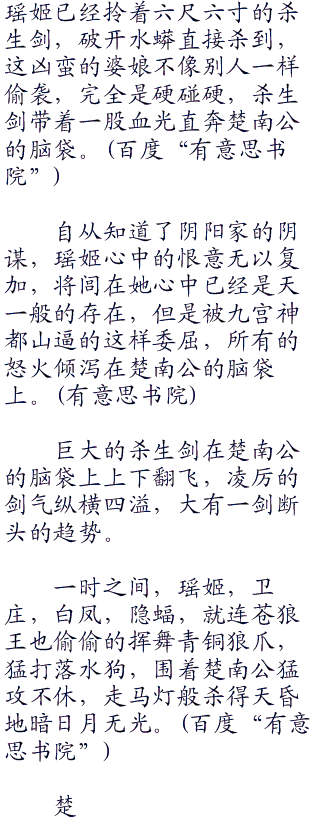 瑶姬已经拎着六尺六寸的杀
生剑，破开水蟒直接杀到，
这凶蛮的婆娘不像别人一样
偷袭，完全是硬碰硬，杀生
剑带着一股血光直奔楚南公
的脑袋。(百度“有意思书
院”)
自从知道了阴阳家的阴
谋，瑶姬心中的恨意无以复
加，将闾在她心中已经是天
一般的存在，但是被九宫神
都山逼的这样委屈，所有的
怒火倾泻在楚南公的脑袋
上。(有意思书院)
巨大的杀生剑在楚南公
的脑袋上上下翻飞，凌厉的
剑气纵横四溢，大有一剑断
头的趋势。
一时之间，瑶姬，卫
庄，白凤，隐蝠，就连苍狼
王也偷偷的挥舞青铜狼爪，
猛打落水狗，围着楚南公猛
攻不休，走马灯般杀得天昏
地暗日月无光。(百度“有意
思书院”)
楚